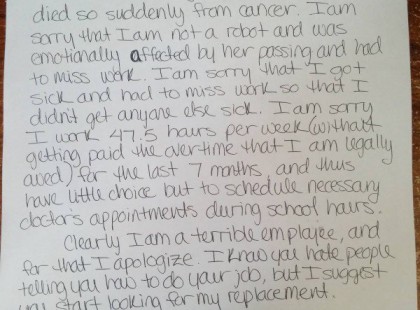 died so suddenly from cancer. I am
sorry that I am not a robot and was
emotionally affected by her passing and had
to miss work. I am sorry that I got
sick and had to miss work so that I
didn't get anyone else sick. I am sorry
I work 47.5 hours per week (without
getting paid the overtime that I am legally
owed) for the last 7 months, and thus
have little choice but to schedule necessary
doctor's appointments during school hours.
Clearly I am a terrible employee, and
for that I apologize. I know you hate people
telling you how to do your job, but I suggest
you start looking for my replacement.